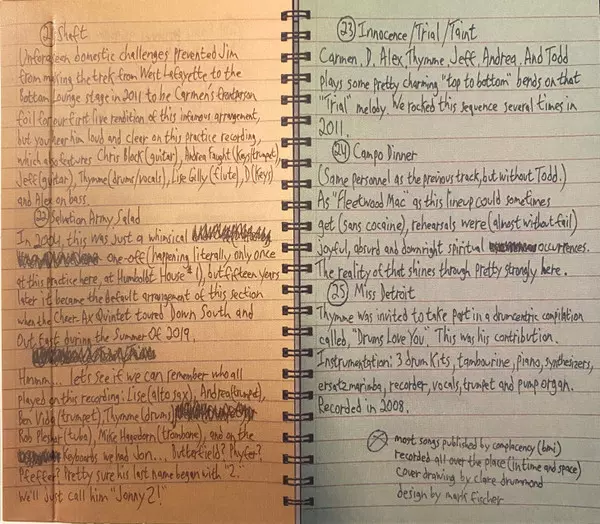 (21) Shaft
Unforeseen domestic challenges prevented Jim
from making the trek from West Lafayette to the
Bottom Lounge stage in 2011 to be Carmen's
foil for our first live rendition of this infamous arrangement,
but you hear him loud and clear on this practice recording,
which also features Chris Block (guitar), Andrea Faught (Keys/trumpet),
Jeff (guitar), Thymme (drums/vocals), Lise Gilly (flute), D (Keys)
and Alex on bass.
(22) Salvation Army Salad
In 2004, this was just a whimsical
one-off (happening literally only once
at this practice here, at Humboldt House!), but fifteen years
later it became the default arrangement of this section
when the Cheer-Ax Quintet toured Down South and
Out East during the Summer Of 2019.
Hmmm... let's see if we can remember who all
played on this recording: Lise (alto sax), Andrea (trumpet),
Ben Vida (trumpet), Thymme (drums)
Rob Plesher (tuba), Mike Hagedorn (trombone), and on the
Keyboards we had Jon... Butterfield? Phyfer?
Pfeffer? Pretty sure his last name began with "2."
We'll just call him "Jonny 2!"
(23) Innocence/Trial/Taint
Carmen, D, Alex, Thymme, Jeff, Andrea. And Todd
plays some pretty charming "top to bottom" bends on that
"Trial" melody. We rocked this sequence several times in
2011.
(24) Campo Dinner
(Same personnel as the previous track, but without Todd.)
As "Fleetwood Mac" as this lineup could sometimes
get (sans cocaine), rehearsals were (almost without fail)
joyful, absurd and downright spiritual occurrences.
The reality of that shines through pretty strongly here.
(25) Miss Detroit
Thymme was invited to take part in a drumcentric compilation
called, "Drums Love You." This was his contribution.
Instrumentation: 3 drum kits, tambourine, piano, synthesizers,
ersatz marimba, recorder, vocals, trumpet and pump organ.
Recorded in 2008.
most songs published by complacency (bmi)
recorded all over the place (in time and space)
cover drawing by claire drummond
design by mark fischer